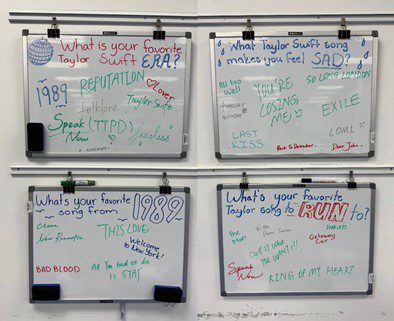 What is your favorite
Taylor Swift ERA?
REPUTATION
1989
Lover
folklore
Taylor Swift
Speak
Now
(TTPD)
fearless
evermore
What Taylor Swift song
makes you feel SAD?
All too
Well
YOU'RE
LOSING
ME
SO LONG LONDON
forever
winter
EXILE
LAST
KISS
Back to December
LOML
Dear John
What's your favorite
song from 1989
Clean
New Romantics
THIS LOVE
Welcome
to New York!
BAD BLOOD
All You Need to do
is STAY
What's your favorite
Taylor song to RUN to?
the
Man
FEARLESS
Getaway
Car
Speak
Now
KING OF MY HEART